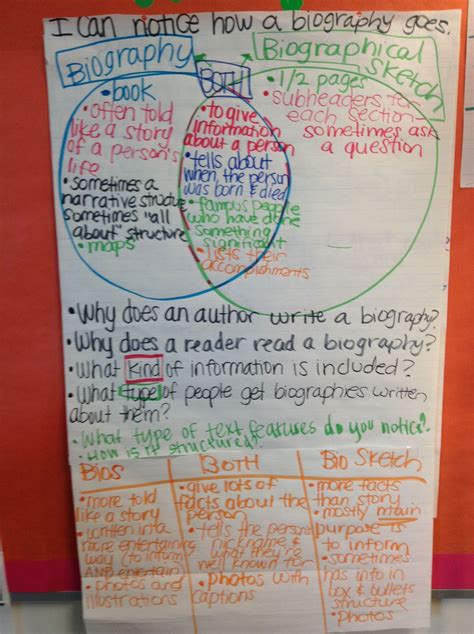 I can notice how a biography goes.
Biography
BOTH
Biographical
Sketch
• book
• often told
like a story
of a person's
life
• sometimes a
narrative structure
sometimes "all
about" structure
• maps
• to give
information
about a person
• tells about
when the person
was born & died
• famous people
who have done
something
significant
• lists their
accomplishments
• 1/2 pages
• subheaders for
each section-
sometimes ask
a question
• Why does an author write a biography?
• Why does a reader read a biography?
• What kind of information is included?
• What type of people get biographies written
about them?
• What type of text features do you notice?
• How is it structured?
Bios
• more told
like a story
• written in a
more entertaining
way (to inform
AND entertain
• photos and
illustrations
BOTH
• give lots of
facts about the
person
• tells the persons
nickname &
what they're
well known for
• photos with
captions
Bio Sketch
• more facts
than story
• mostly main
purpose is
to inform
• sometimes
has info in
box & bullets
structure
• photos